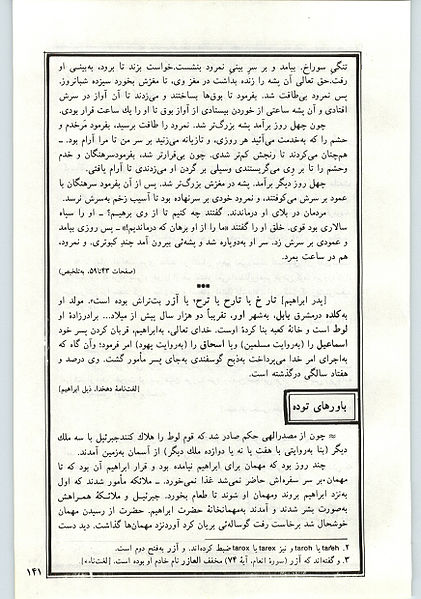 تنگی سوراخ. بیامد و بر سر بینی نمرود بنشست. خواست بزند تا برود، به‌بینی او
رفت. حق تعالی آن پشه را زنده بداشت در مغز وی، تا مغزش بخورد سیزده شبانروز.
پس نمرود بی‌طاقت شد. بفرمود تا بوق‌ها بساختند و می‌زدند تا آن آواز در سرش
افتادی و آن پشه ساعتی از خوردن بیستادی از آواز بوق تا او را یك ساعت قرار بودی.
چون چهل روز برآمد پشه بزرگ‌تر شد. نمرود را طاقت برسید، بفرمود مَرخدم و
حشم را که به‌خدمت می‌آئید هر روزی، و تازیانه می‌زنید بر سر من تا مرا آرام بود. ـ
هم‌چنان می‌کردند تا رنجش کم‌تر شدی. چون بی‌قرارتر شد، بفرمود سرهنگان و خدم
وحشم را تا بر وی می‌گریستندی وسیلی بر گردن او می‌زدندی تا آرام یافتی.
چهل روز دیگر برآمد. پشه در مغزش بزرگ‌تر شد. پس از آن بفرمود سرهنگان با
عمود بر سرش می‌کوفتند، و نمرود خودی بر سر نهاده بود تا آسیب زخم به‌سرش نرسد.
مردمان در بلای او درماندند. گفتند چه کنیم تا از وی برهیم؟ ـ او را سیاه
سالاری بود قوی. خلق او را گفتند «ما را از او برهان که درماندیم!» ـ پس روزی بیامد
و عمودی بر سرش زد. سر او به‌دوپاره شد و پشه‌ئی بیرون آمد چندِ کبوتری. و نمرود،
هم در ساعت بمرد.
(صفحات ۴۳تا۵۹، به‌تلخیص)
[پدر ابراهیم] تار خ یا تارح یا ترح، یا آزر بت‌تراش بوده است۲. مولد او
به‌کلده درمشرق بابل، به‌شهر اور، تقریباً دو هزار سال پیش از میلاد... برادرزادهٔ او
لوط است و خانهٔ کعبه بنا کردهٔ اوست. خدای تعالی، به‌ابراهیم، قربان کردن پسر خود
اسماعیل را (به‌روایت مسلمین) ویا اسحاق را (به‌روایت یهود) امر فرمود؛ وآن گاه که
به‌اجرای امر خدا می‌پرداخت به‌ذبح گوسفندی به‌جای پسر مأمور گشت. وی درصد و
هفتاد سالگی درگذشته است.
[لغت‌نامهٔ دهخدا، ذیل ابراهیم]
باورهای توده
≈ چون از مصدرالهی حکم صادر شد که قوم لوط را هلاك کنندجبرئیل با سه ملك
دیگر (بنا به‌روایتی با هفت یا نه یا دوازده ملك دیگر) از آسمان به‌زمین آمدند.
چند روز بود که مهمان برای ابراهیم نیامده بود و قرار ابراهیم آن بود که تا
مهمان‌بر سر سفره‌اش حاضر نمی‌شد غذا نمی‌خورد. ـ ملائکه مأمور شدند که اول
به‌نزد ابراهیم بروند ومهمان او شوند تا طعام بخورد. جبرئیل و ملائکهٔ همراهش
به‌صورت بشر شدند و آمدند به‌مهمانخانهٔ حضرت ابراهیم. حضرت از رسیدن مهمان
خوشحال شد برخاست رفت گوساله‌ئی بریان کرد آوردنزد مهمان‌ها گذاشت. دید دست
۲. tāreh یا tāroh و نیز tārex یا tārox ضبط کرده‌اند، و آزر به‌فتح دوم است.
۳. و گفته‌اند که آزر (سورهٔ انعام، آیهٔ ۷۴) مخفف العازر نام خادم او بوده است. [لغت‌نامه]
۱۴۱